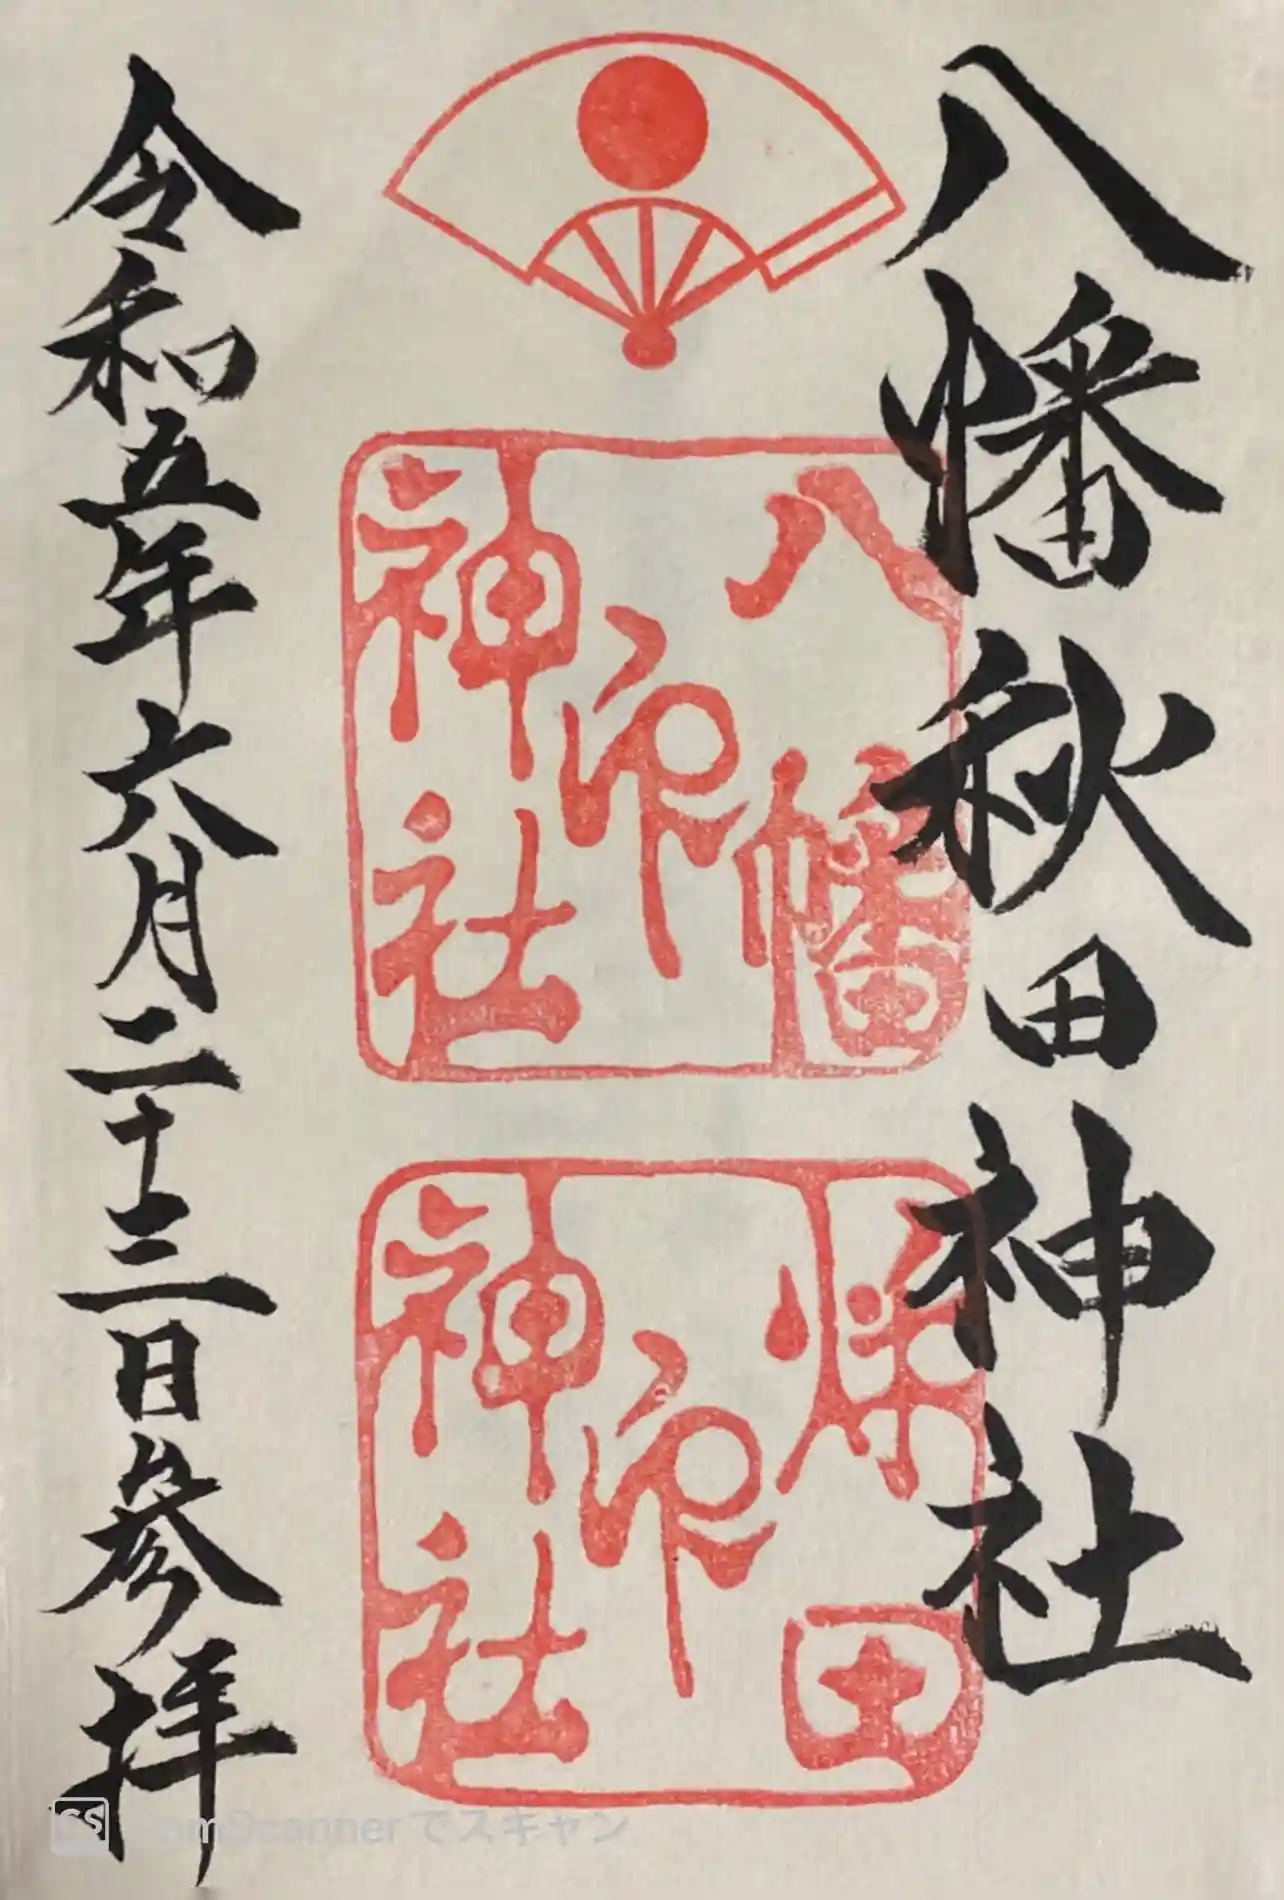 八幡秋田神社
八幡
神社
印
秋田
神社
印
令和五年六月二十三日参拝
CamScannerでスキャン